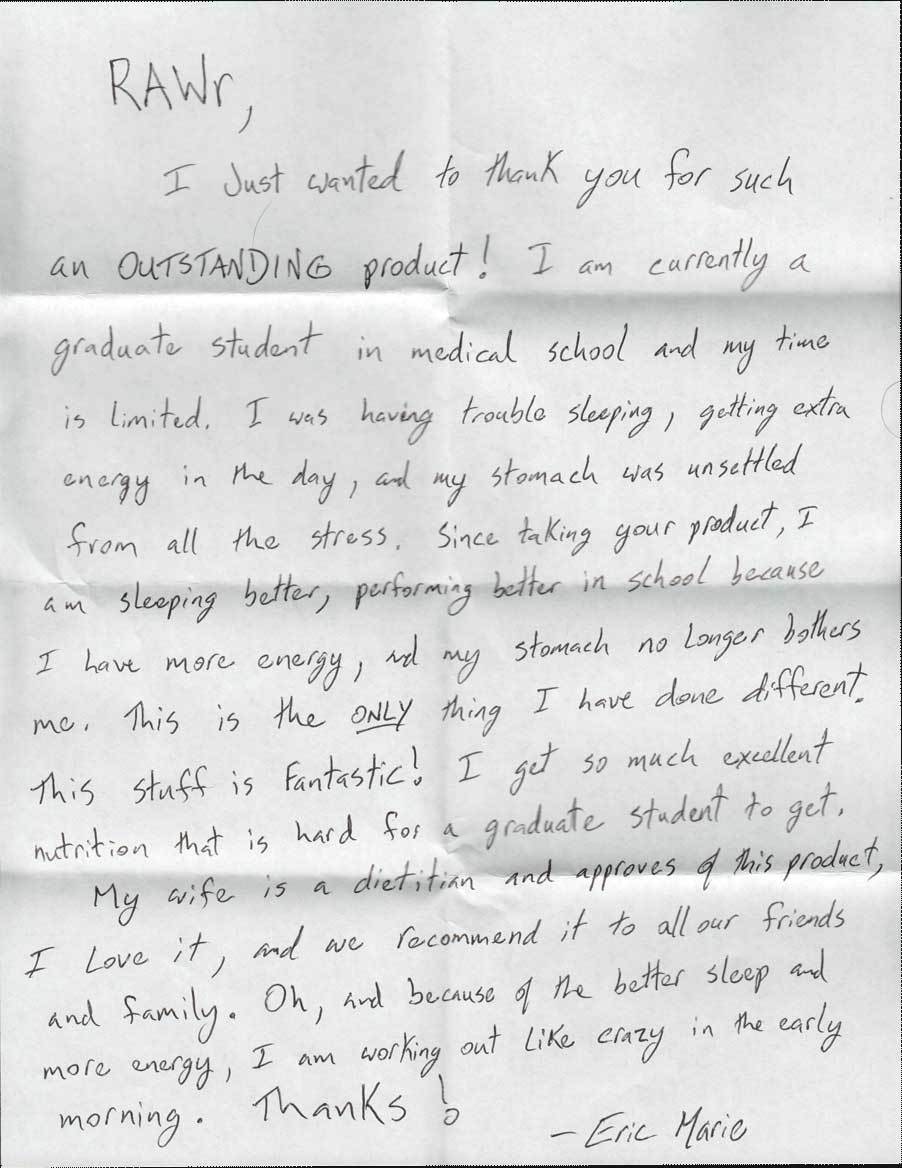 RAWr,
I Just wanted to thank you for such
an OUTSTANDING product! I am currently a
graduate student in medical school and my time
is limited. I was having trouble sleeping, getting extra
energy in the day, and my stomach was unsettled
from all the stress. Since taking your product, I
am sleeping better, performing better in school because
I have more energy, and my stomach no longer bothers
me. This is the ONLY thing I have done different.
This stuff is Fantastic! I get so much excellent
nutrition that is hard for a graduate student to get.
My wife is a dietitian and approves of this product,
I Love it, and we recommend it to all our friends
and family. Oh, and because of the better sleep and
more energy, I am working out like crazy in the early
morning. Thanks!
- Eric Marie